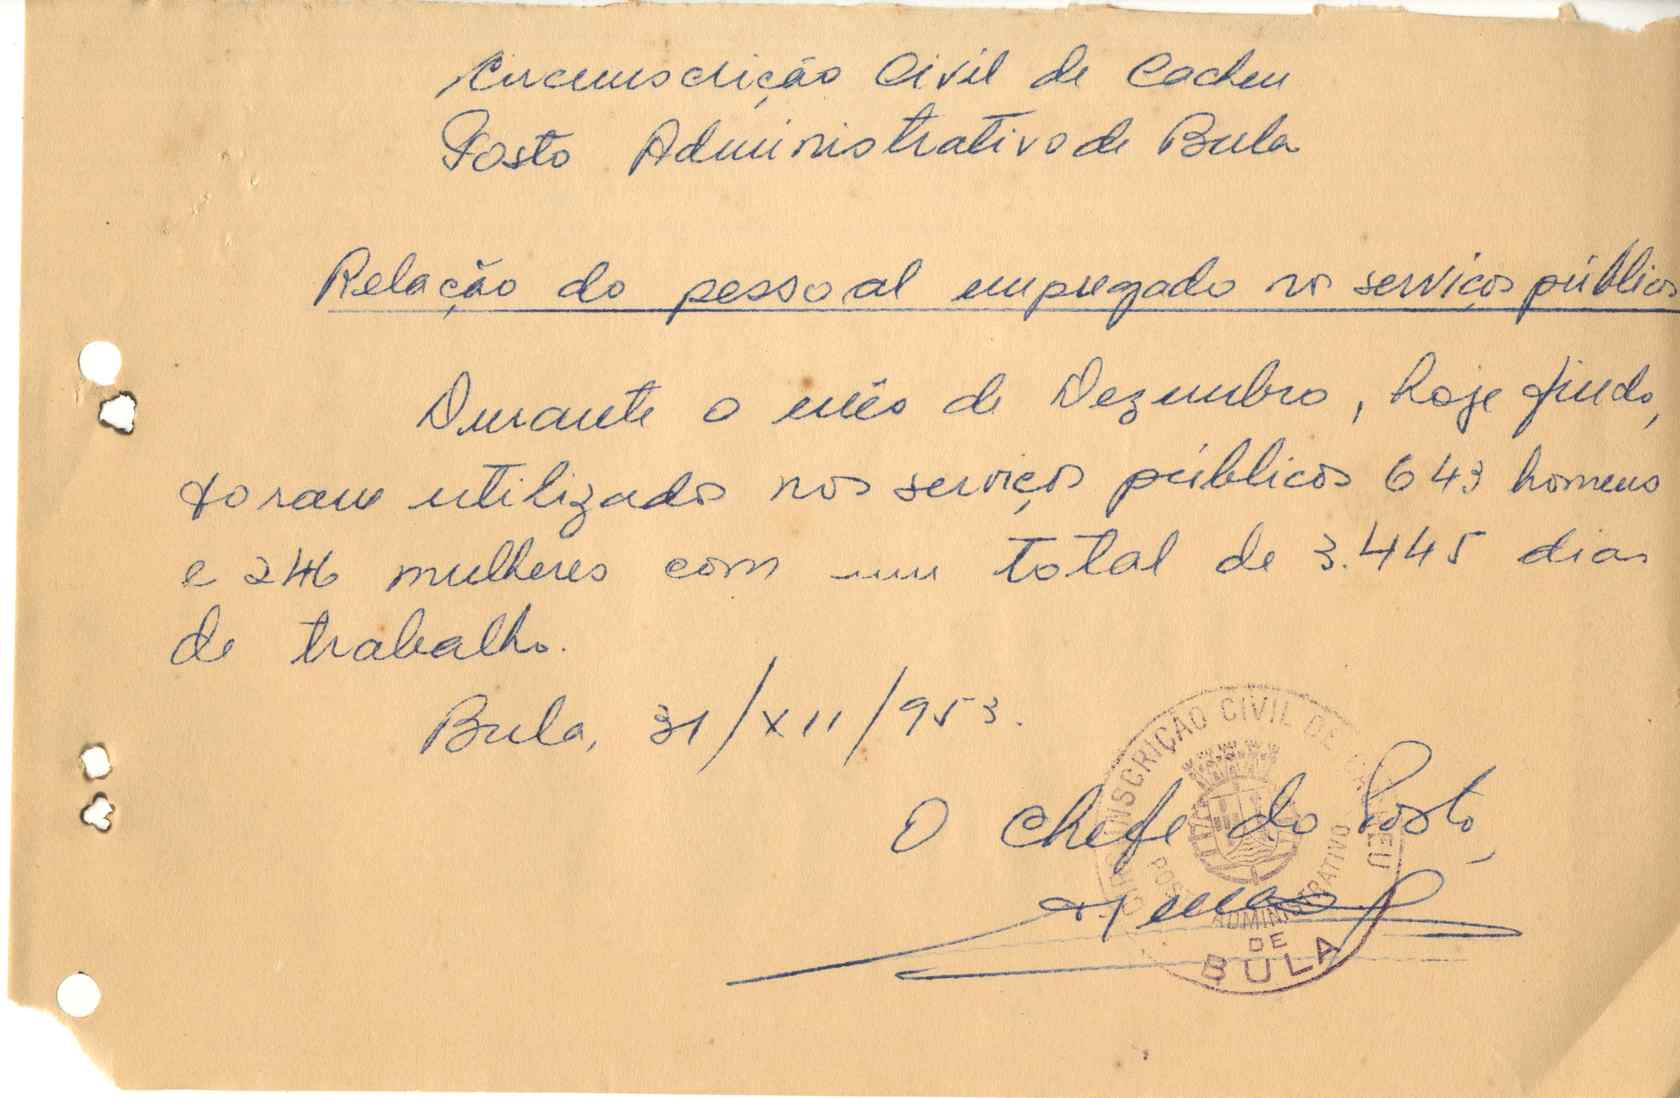 Circunscrição Civil de Cacheu
Posto Administrativo de Bula
Relação do pessoal empregado nos serviços públicos
Durante o mês de Dezembro, hoje findo,
foram utilizados nos serviços públicos 643 homens
e 246 mulheres com um total de 3.445 dias
de trabalho.
Bula, 31/XII/953.
O Chefe do Posto,
CIRCUNSCRIÇÃO CIVIL DE CACHEU
POSTO ADMINISTRATIVO
DE
BULA